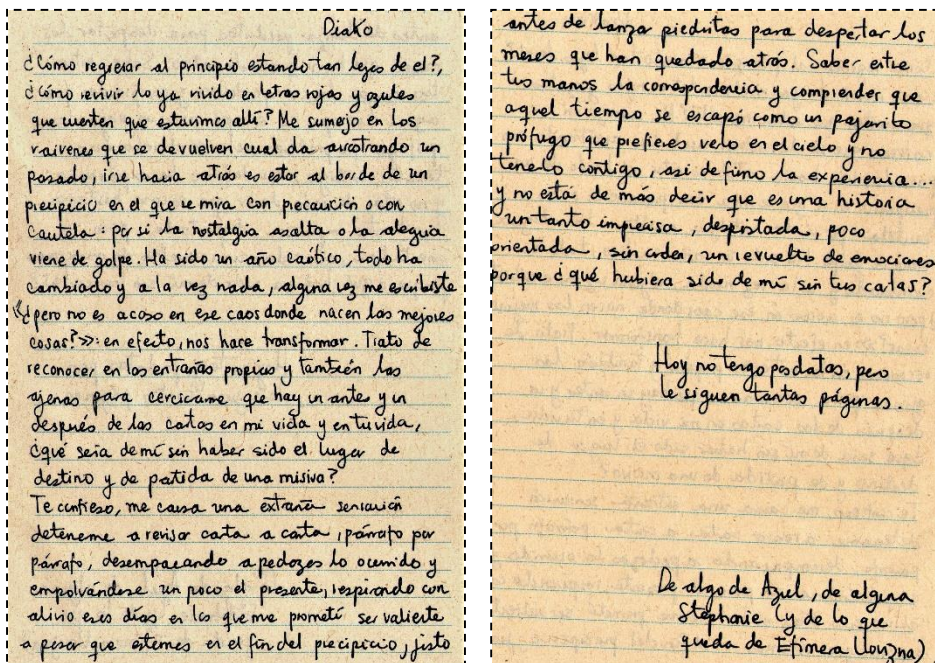 Diako
¿Cómo regresar al principio estando tan lejos de el?,
¿cómo revivir lo ya vivido en letras rojas y azules
que cuenten que estuvimos allí? Me sumejo en los
vaivenes que se devuelven cual da arrastrando un
pasado, irse hacia atrás es estar al borde de un
precipicio en el que se mira con precaución o con
cautela: por si la nostalgia asalta o la alegria
viene de golpe. Ha sido un año caótico, todo ha
cambiado y a la vez nada, alguna vez me escribiste
«¿pero no es acaso en ese caos donde nacen las mejores
cosas?»: en efecto, nos hace transformar. Trato de
reconocer en las entrañas propias y también las
ajenas para cerciorarme que hay un antes y un
después de las cartas en mi vida y en tu vida,
¿qué seria de mí sin haber sido el lugar de
destino y de partida de una misiva?
Te confieso, me causa una extraña sensación
detenerme a revisar carta a carta, párrafo por
párrafo, desempacando a pedazos lo ocurrido y
empolvándose un poco el presente, respirando con
alivio esos días en los que me prometí ser valiente
a pesar que estemos en el fin del precipicio, justo
antes de lanzar piedritas para despertar los
meses que han quedado atrás. Saber entre
tus manos la correspondencia y comprender que
aquel tiempo se escapó como un pajarito
prófugo que prefieres verlo en el cielo y no
tenerlo contigo, asi defino la experiencia...
y no está de más decir que es una historia
un tanto imprecisa, despistada, poco
orientada, sin orden, un revuelto de emociones
porque ¿qué hubiera sido de mí sin tus cartas?
Hoy no tengo posdatas, pero
le siguen tantas páginas.
De algo de Azul, de alguna
Stephanie (y de lo que
queda de Efímera Llovizna)